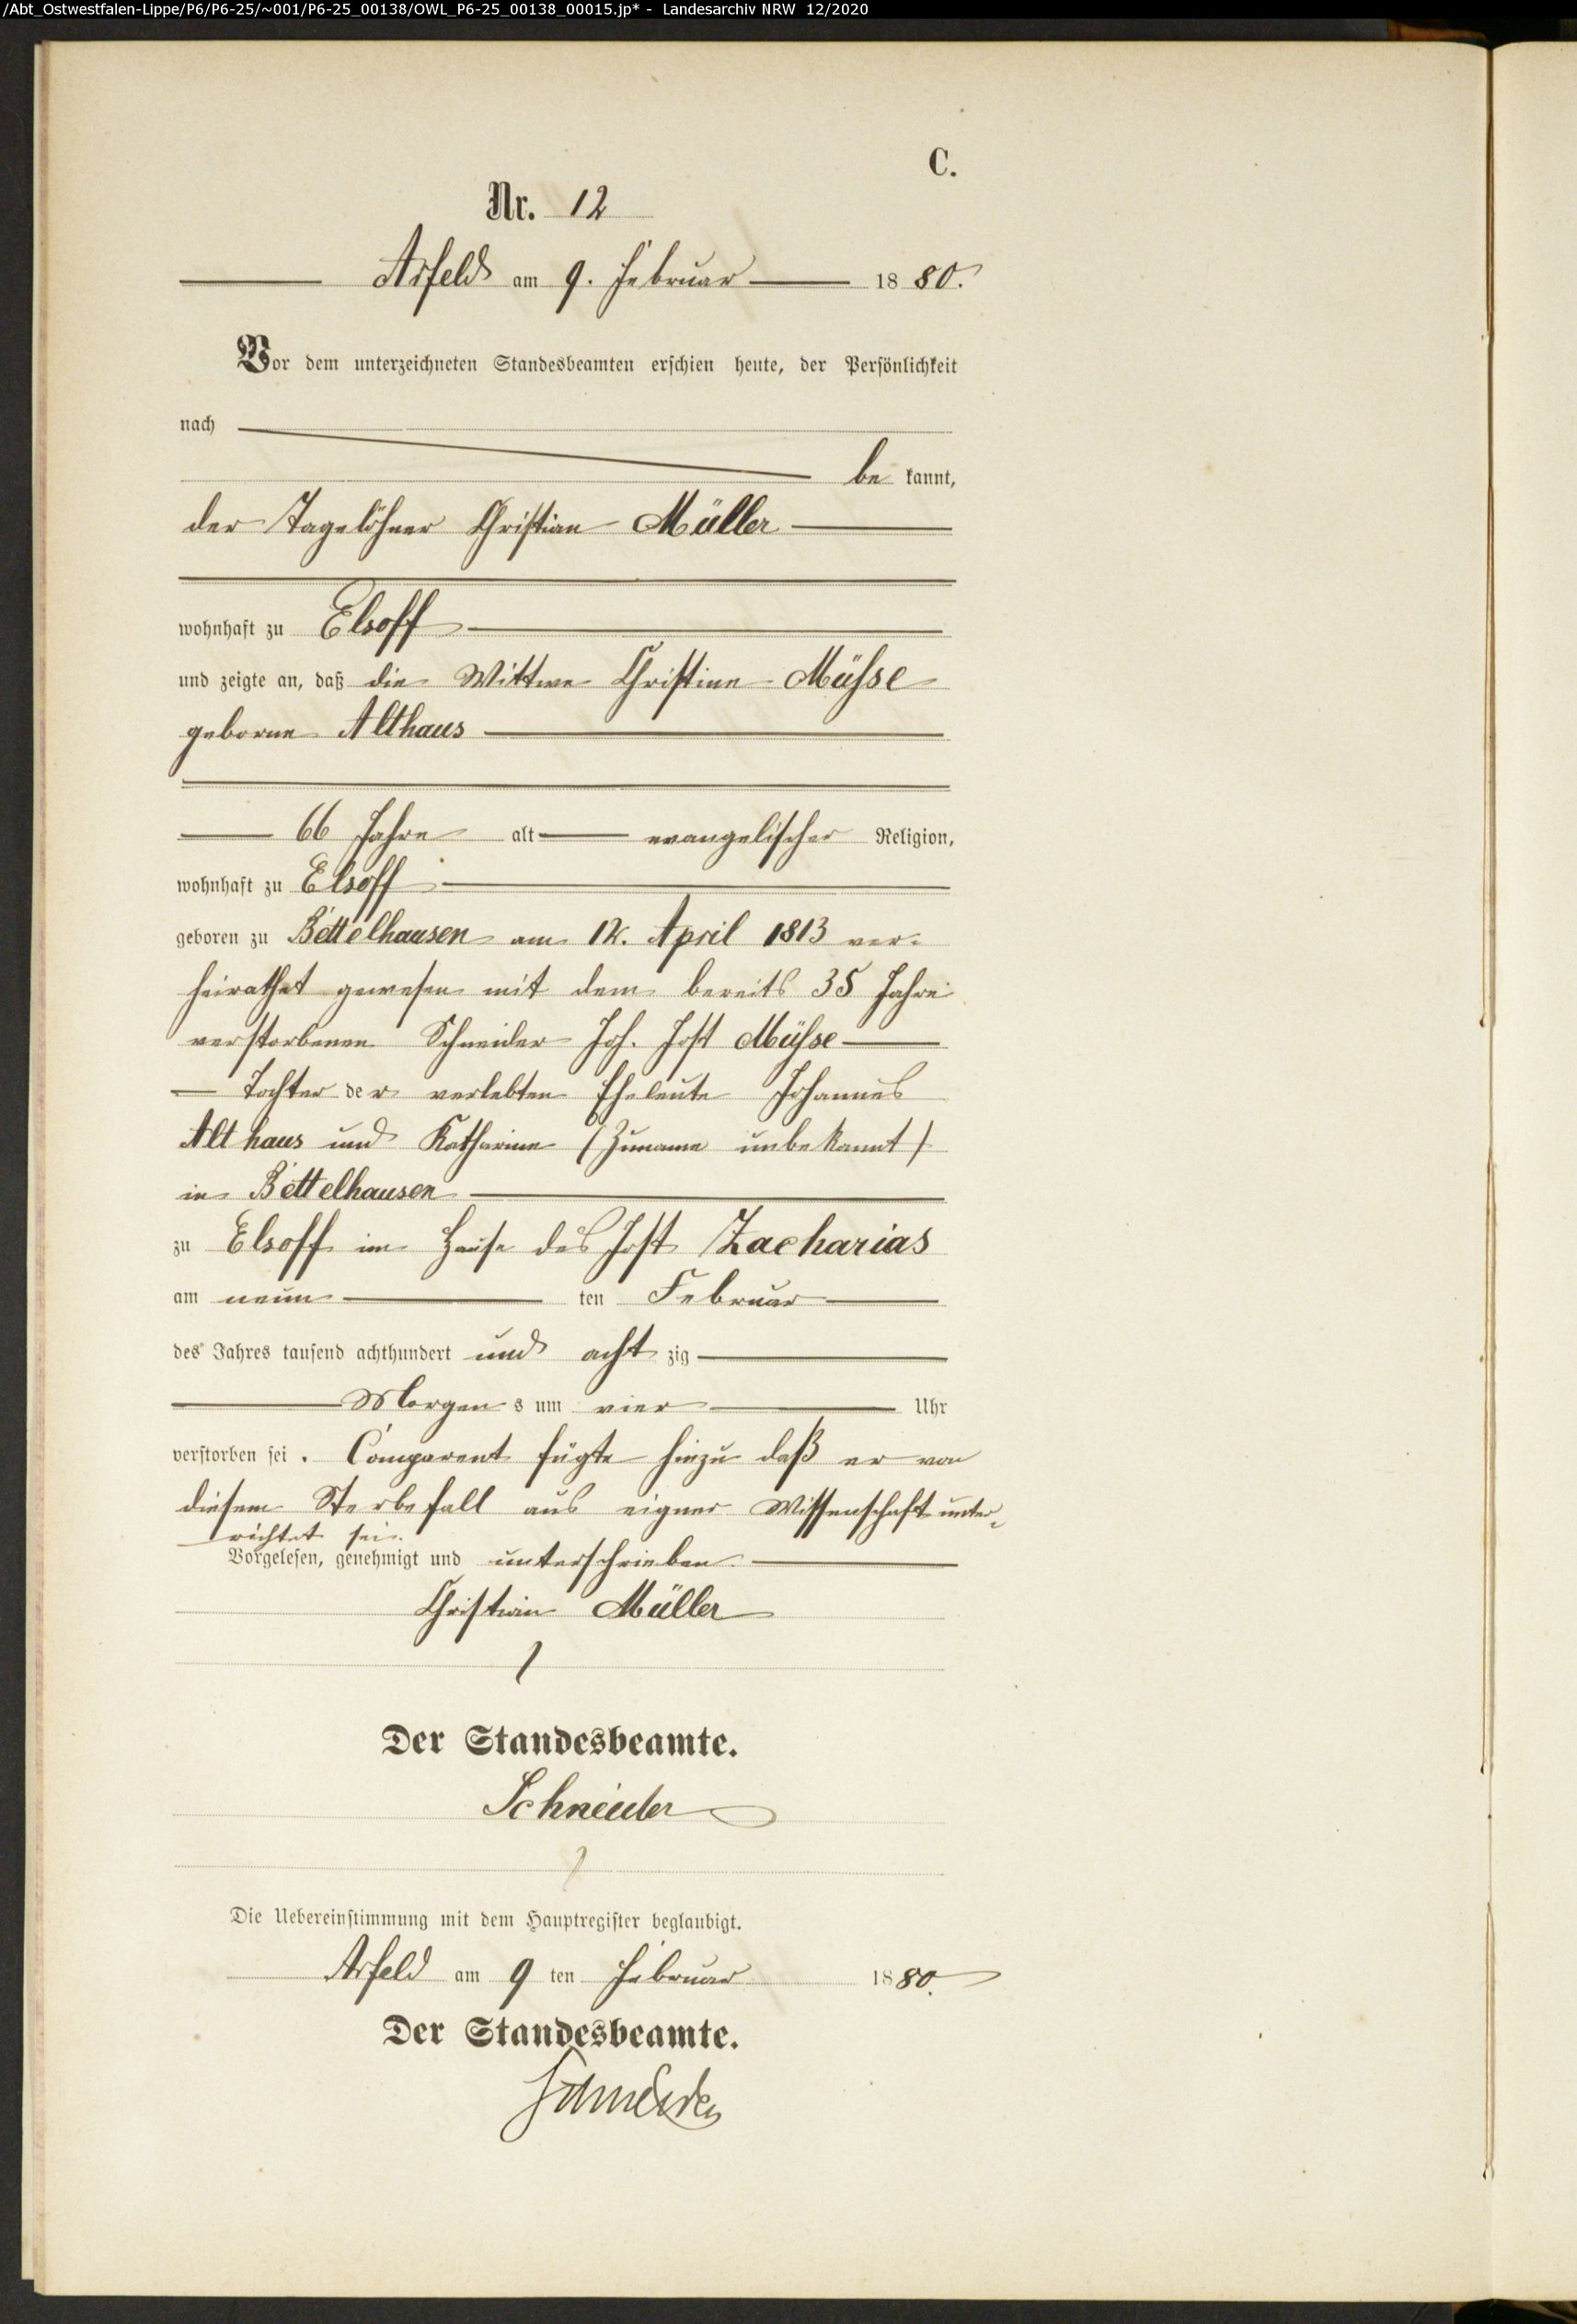 /Abt_Ostwestfalen-Lippe/P6/P6-25/~001/P6-25_00138/OWL_P6-25_00138_00015.jp* - Landesarchiv NRW 12/2020
C.
Nr. 12
Arfeld am 9. Februar 1880.
Vor dem unterzeichneten Standesbeamten erschien heute, der Persönlichkeit
nach
be kannt,
der Tagelöhner Christian Müller
wohnhaft zu Elsoff
und zeigte an, daß die Wittwe Christine Müsse
geborne Althaus
66 Jahre alt evangelischer Religion,
wohnhaft zu Elsoff
geboren zu Bettelhausen am April 1813 ver-
heirathet gewesen mit dem bereits 35 Jahre
verstorbenen Schneider Joh. Jost Müsse
Tochter der verlebten Eheleute Johannes
Althaus und Katharine (Zuname unbekannt)
in Bettelhausen
zu Elsoff im Hause des Jost Zacharias
am neun ten Februar
des Jahres tausend achthundert und acht zig
Morgen s um vier Uhr
verstorben sei. Comparent fügte hinzu daß er von
diesem Sterbefall aus eigner Wissenschaft unter-
richtet sei.
Vorgelesen, genehmigt und unterschrieben
Christian Müller
Der Standesbeamte.
Schneider
Die Uebereinstimmung mit dem Hauptregister beglaubigt.
Arfeld am 9 ten Februar 1880.
Der Standesbeamte.
Schneider